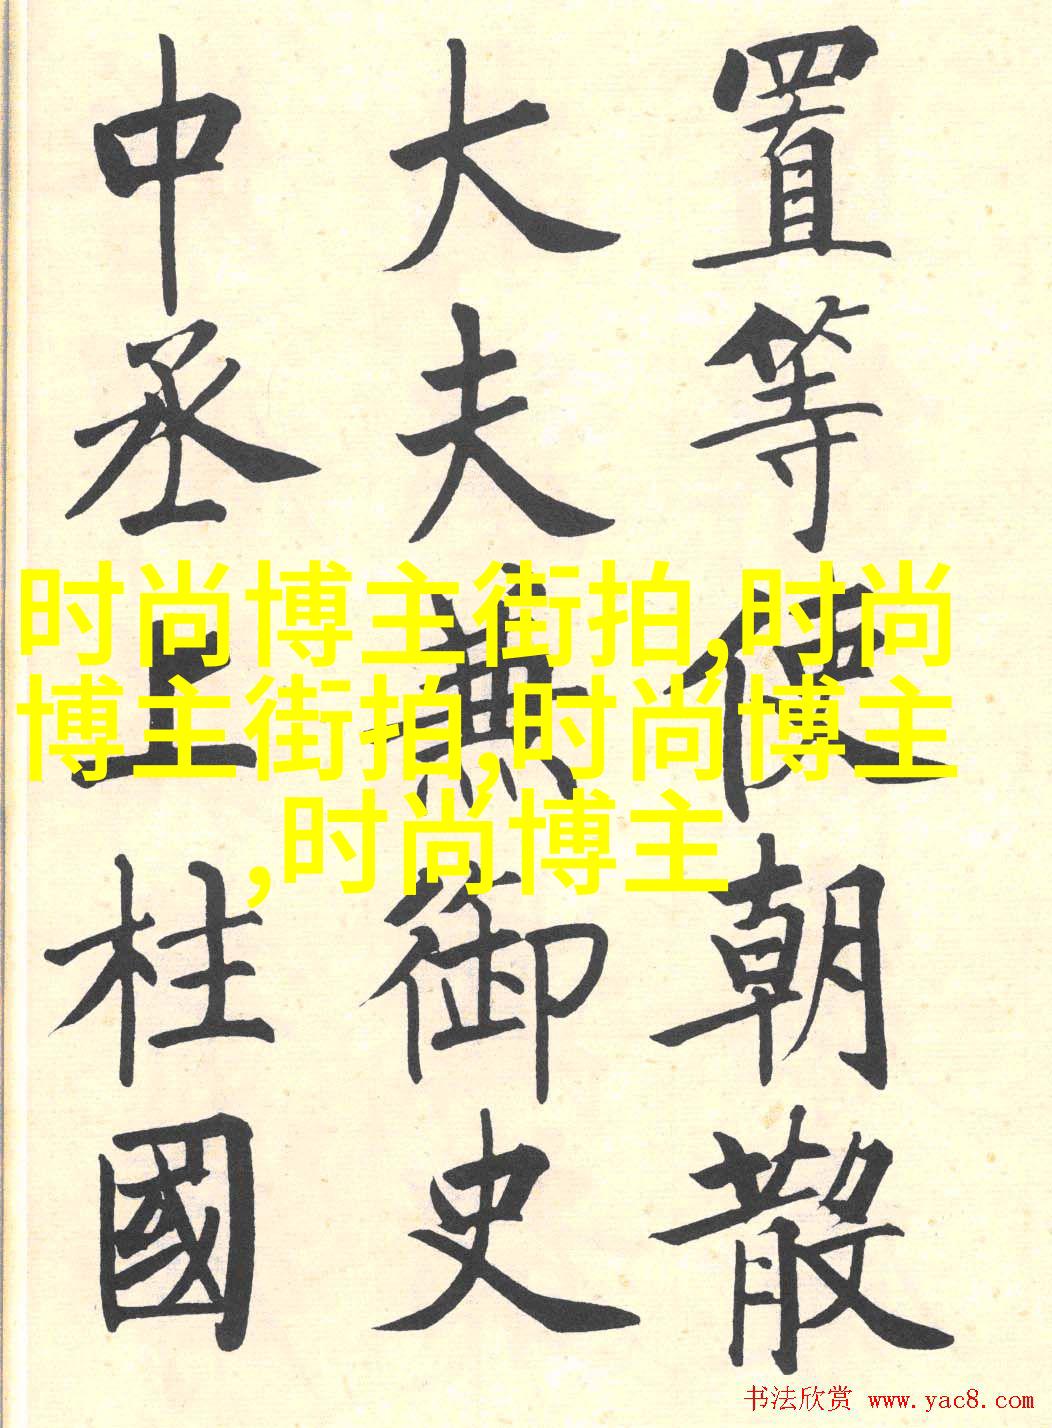 置等使朝散
大夫兼御史
中丞上柱國
时尚博主街拍,时尚
博主街拍,时尚博主
,时尚博主
书法欣赏 www.yac8.com